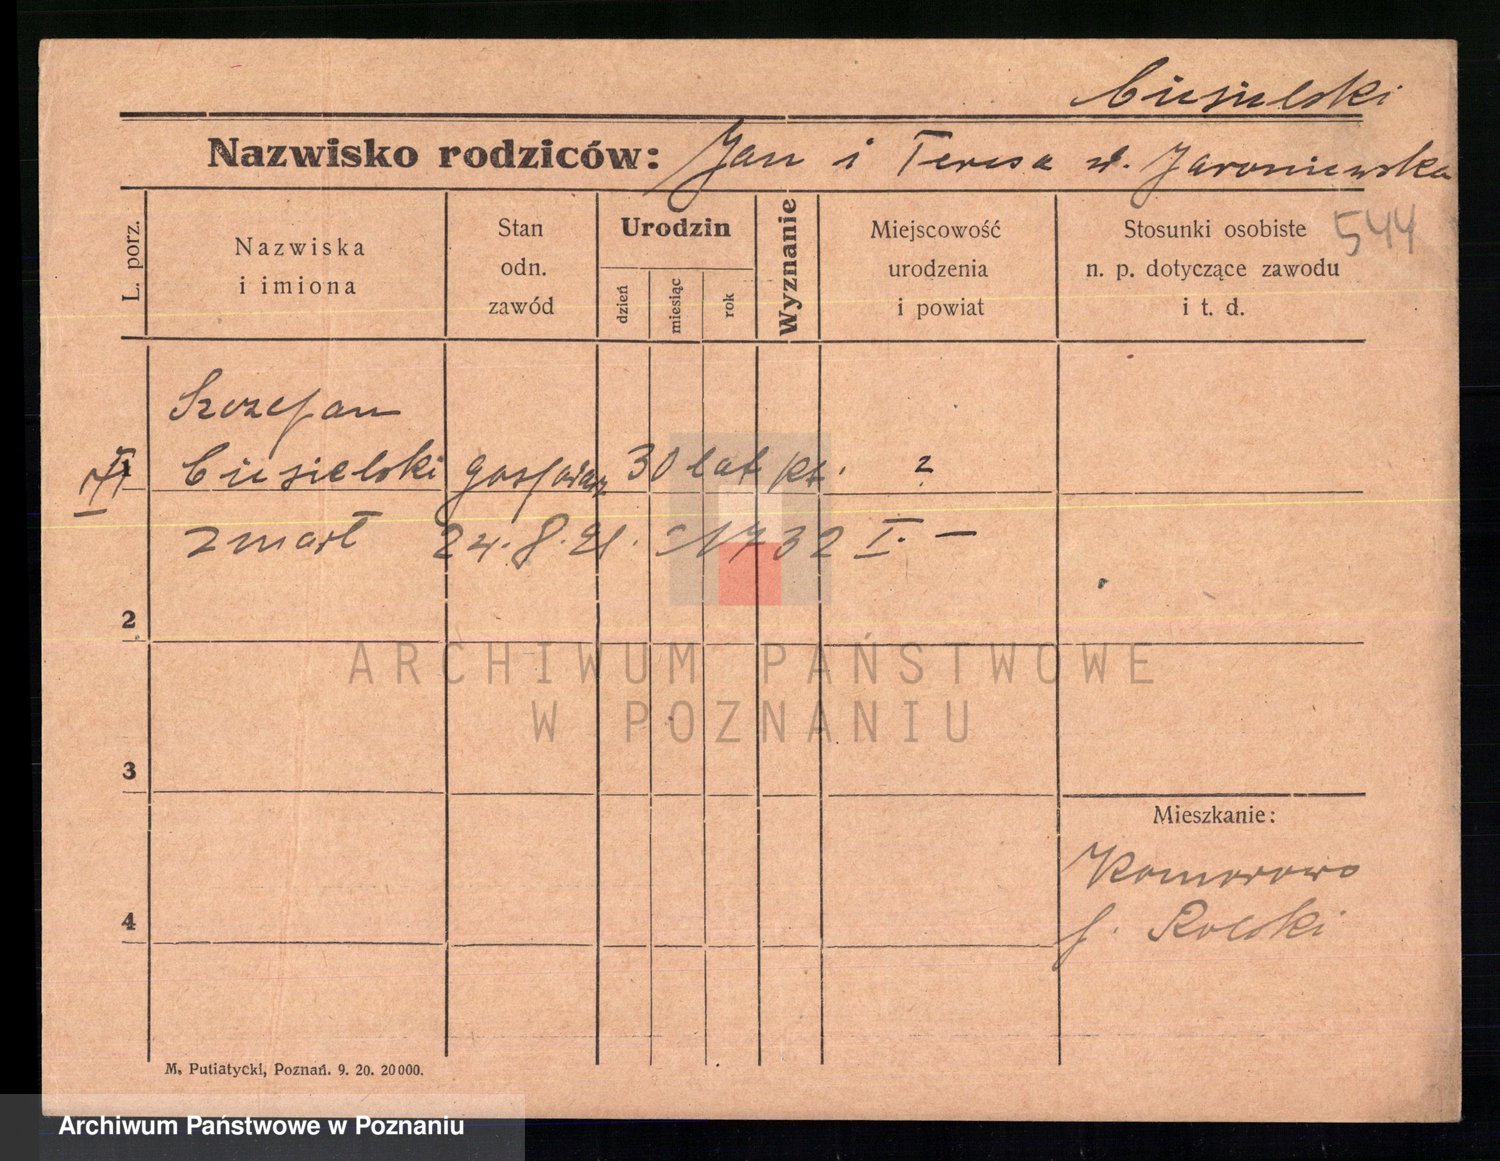 Ciesielski
Nazwisko rodziców: Jan i Teresa z d. Jaroniewska
544
L. porz.
Nazwiska
i imiona
Stan
odn.
zawód
Urodzin
dzień
miesiąc
rok
Wyznanie
Miejscowość
urodzenia
i powiat
Stosunki osobiste
n. p. dotyczące zawodu
i t. d.
Szczepan
Ciesielski gospodarz 30 lat kt. ?
zmarł 24. 8. 21. 1732 I. —
2
3
4
Mieszkanie:
Komorowo
p. Kolski
M. Putiatycki, Poznań. 9. 20. 20000.
ARCHIWUM PAŃSTWOWE
W POZNANIU
Archiwum Państwowe w Poznaniu